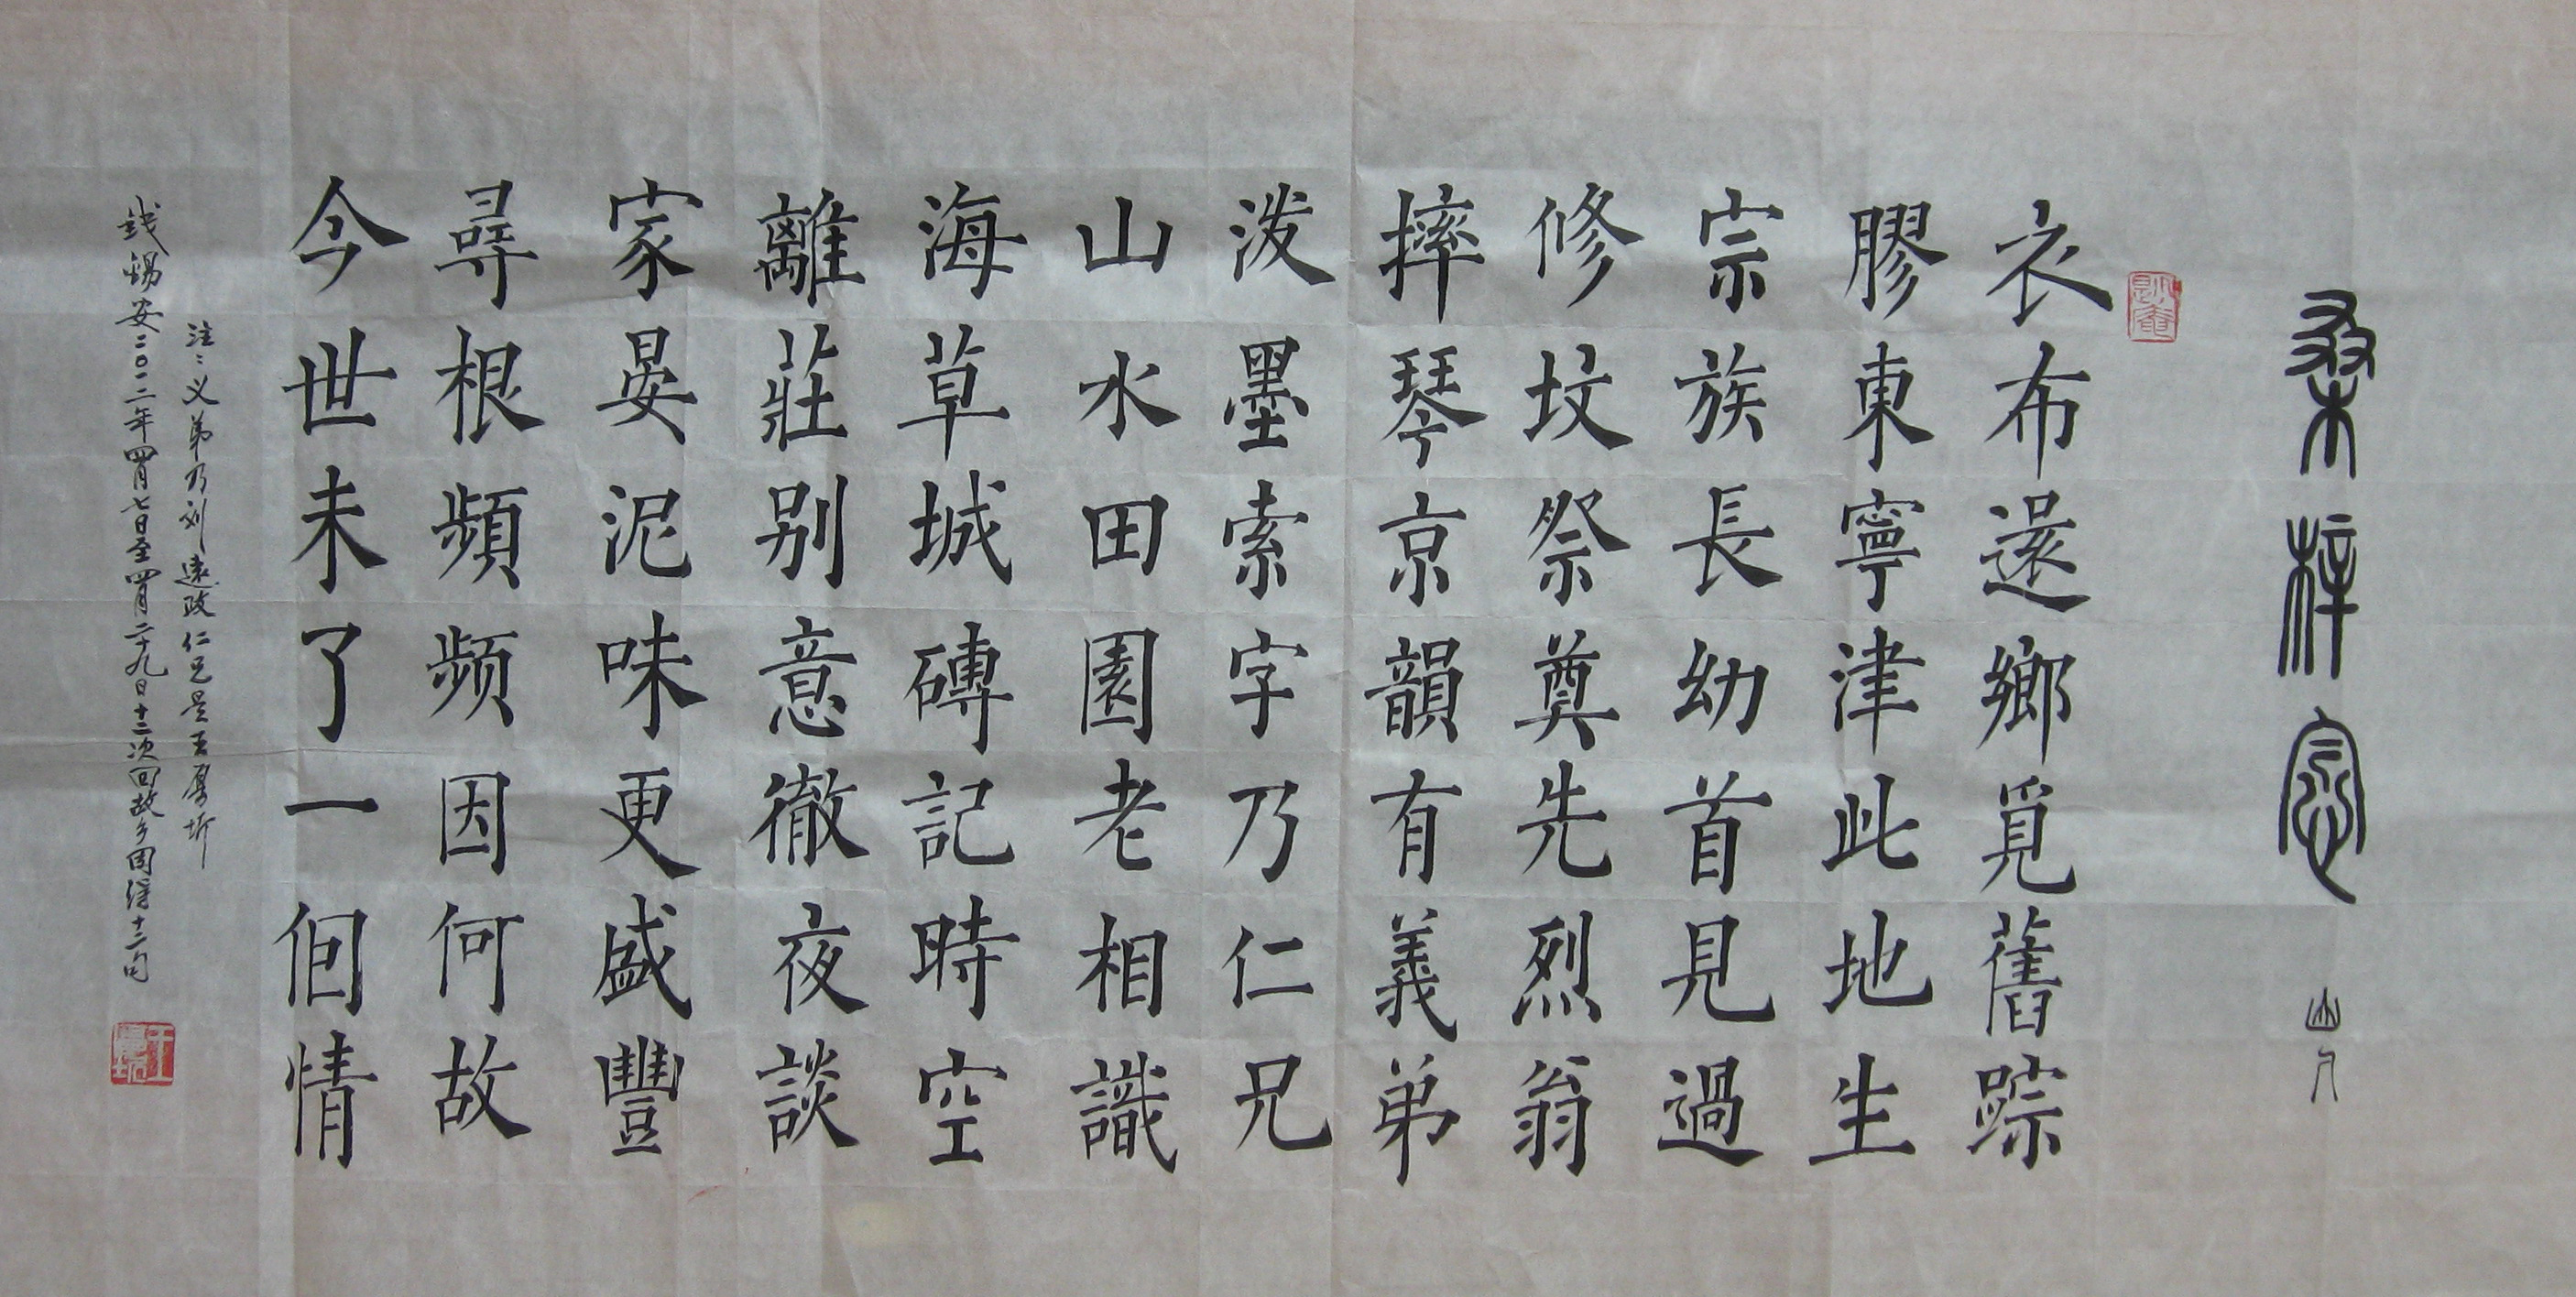 桑梓念
山人
衣布還鄉覓舊踪
膠東寧津此地生
宗族長幼首見過
修坟祭奠先烈翁
摔琴京韻有義弟
泼墨索字乃仁兄
山水田園老相識
海草城磚記時空
離莊别意徹夜談
家晏泥味更盛豐
尋根頻频因何故
今世未了一個情
注：义弟乃刘遠政仁兄是王厚圻
錢锡安二〇一二年四月七日至四月二十九日十二次回故乡固得十二句